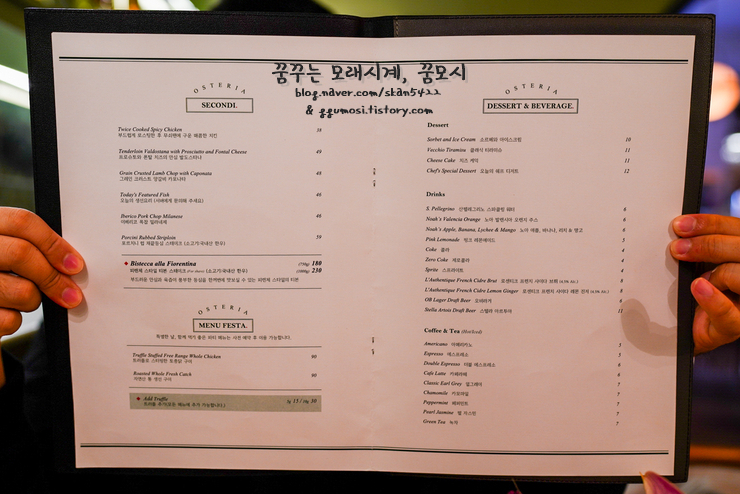 꿈꾸는 모래시계, 꿈모시
blog.naver.com/skan5422
& ggumosi.tistory.com
OSTERIA
SECONDI.
Twice Cooked Spicy Chicken 38
부드럽게 로스팅한 후 무쇠팬에 구운 매콤한 치킨
Tenderloin Valdostana with Prosciutto and Fontal Cheese 49
프로슈토와 폰탈 치즈의 안심 발도스타나
Grain Crusted Lamb Chop with Caponata 48
그레인 크러스트 양갈비 카포나타
Today's Featured Fish 46
오늘의 생선요리
Iberico Pork Chop Milanese 46
이베리코 폭찹 밀라네제
Porcini Rubbed Striploin 59
포르치니 럽 채끝등심 스테이크 (소고기:국내산 한우)
Bistecca alla Fiorentina (750g) 180
피렌체 스타일 티본 스테이크 (소고기:국내산 한우) (1000g) 230
부드러운 안심과 육즙이 풍부한 등심을 한꺼번에 맛보실 수 있는 피렌체 스타일의 티본
OSTERIA
MENU FESTA.
특별한 날, 함께 먹기 좋은 파티 메뉴는 사전 예약 후 이용 가능합니다.
Truffle Stuffed Free Range Whole Chicken 90
트러플로 스터핑한 토종닭 구이
Roasted Whole Fresh Catch 90
자연산 통 생선 구이
Add Truffle 5g 15 / 10g 30
트러플 추가(모든 메뉴에 추가 가능합니다.)
OSTERIA
DESSERT & BEVERAGE.
Dessert
Sorbet and Ice Cream 소르베와 아이스크림 10
Vecchio Tiramisu 클래식 티라미수 11
Cheese Cake 치즈 케익 11
Chef's Special Dessert 오늘의 쉐프 디저트 12
Drinks
S. Pellegrino 산펠레그리노 스파클링 워터 6
Noah's Valencia Orange 노아 발렌시아 오렌지 주스 6
Noah's Apple, Banana, Lychee & Mango 노아 애플, 바나나, 리치 & 망고 6
Pink Lemonade 핑크 레몬에이드 5
Coke 콜라 4
Zero Coke 제로콜라 4
Sprite 스프라이트 4
L'Authentique French Cidre Brut 로센티크 프렌치 사이다 브뤼 8
L'Authentique French Cidre Lemon Ginger 로센티크 프렌치 사이다 레몬 진저 8
OB Lager Draft Beer 오비라거 6
Stella Artois Draft Beer 스텔라 아르투아 11
Coffee & Tea (Hot/Iced)
Americano 아메리카노 5
Espresso 에스프레소 5
Double Espresso 더블 에스프레소 6
Cafe Latte 카페라떼 6
Classic Earl Grey 얼그레이 7
Chamomile 카모마일 7
Peppermint 페퍼민트 7
Pearl Jasmine 펄 자스민 7
Green Tea 녹차 7